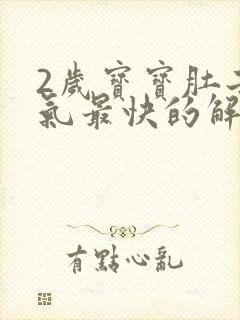 2歲寶寶肚
氣最快的解
有點心亂